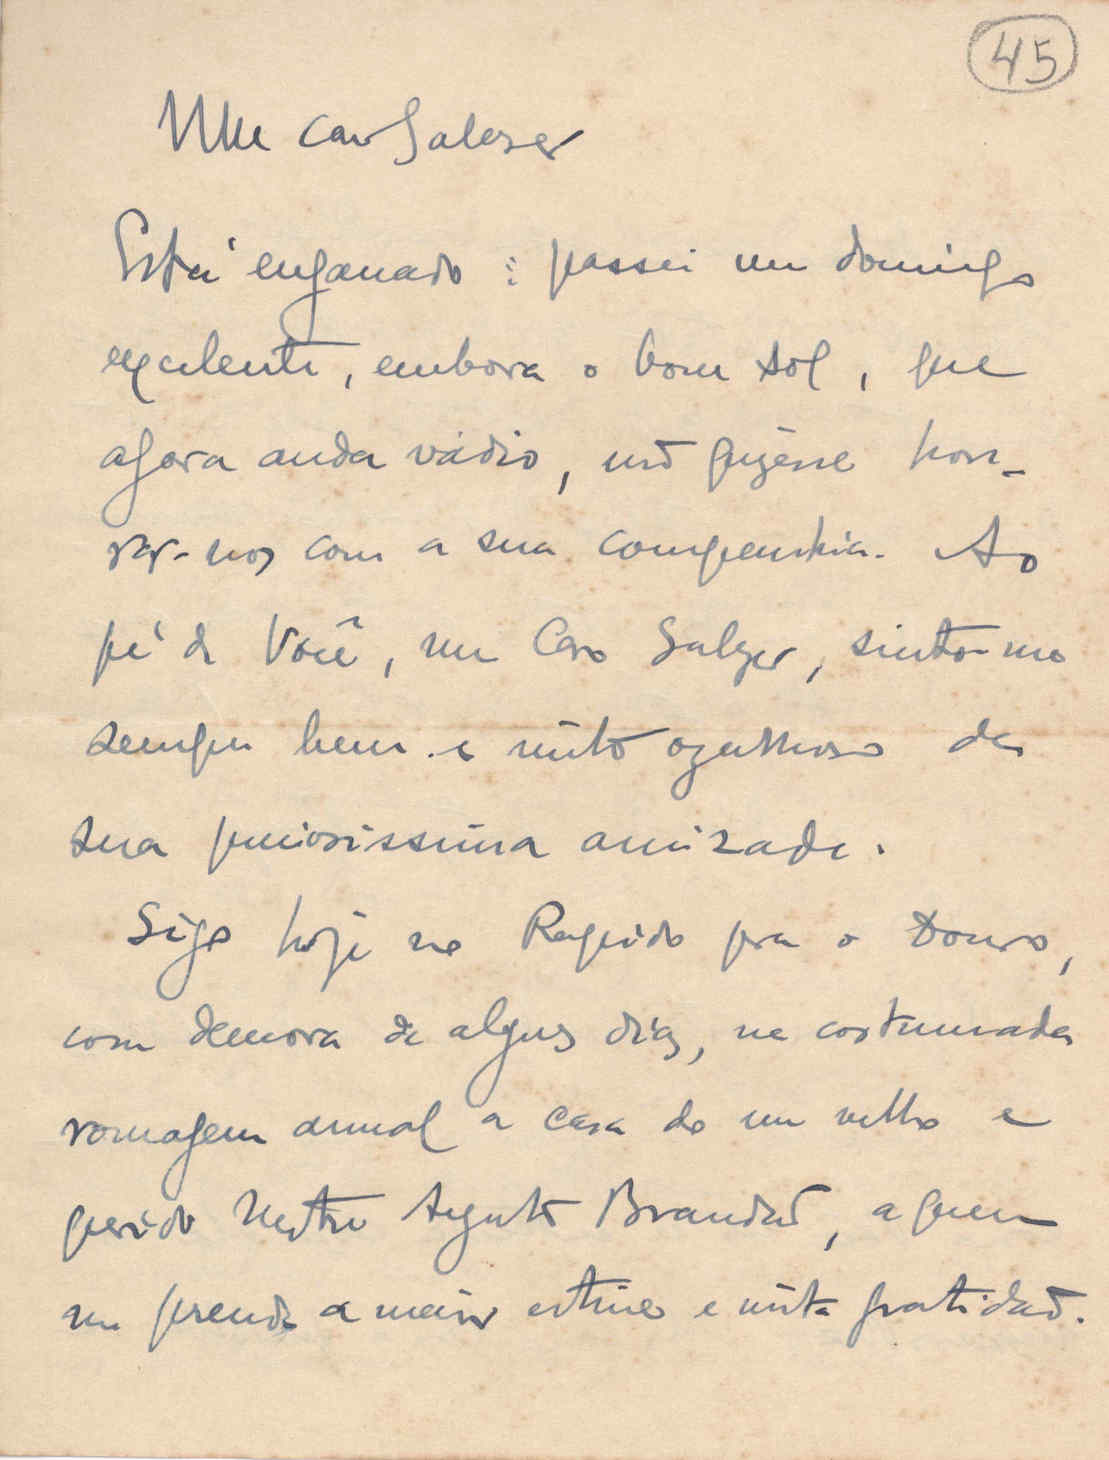 45
Meu Caro Salazar
Está enganado: passei um domingo
excelente, embora o bom sol, que
agora anda vádio, não quizesse hon-
rar-nos com a sua companhia. Ao
pé de Você, meu Caro Salazar, sinto-me
sempre bem e muito orgulhoso da
sua preciosissima amizade.
Sigo hoje no Rapido pra o Douro,
com demora de alguns dias, na costumada
romagem annual a casa do meu velho e
querido Mestre Augusto Brandão, a quem
me prende a maior estima e muita gratidão.